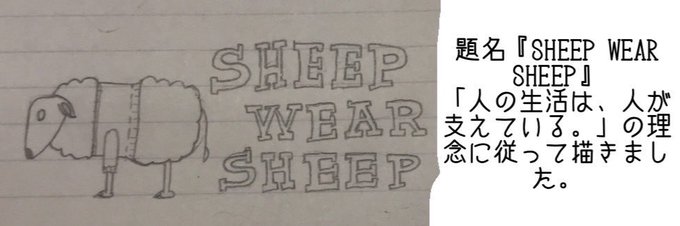 SHEEP
WEAR
SHEEP
題名『SHEEP WEAR
SHEEP』
「人の生活は、人が
支えている。」の理
念に従って描きまし
た。